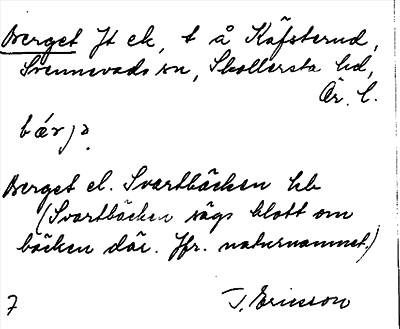 Berget Jt ek, t å Käfsterud,
Svennevads sn, Skollersta hd,
Ör. l.
bærjə.
Berget el. Svartbäcken hb
(Svartbäcken sägs blott om
bäcken där. Jfr. naturnamnet.)
7 J. Ericsson